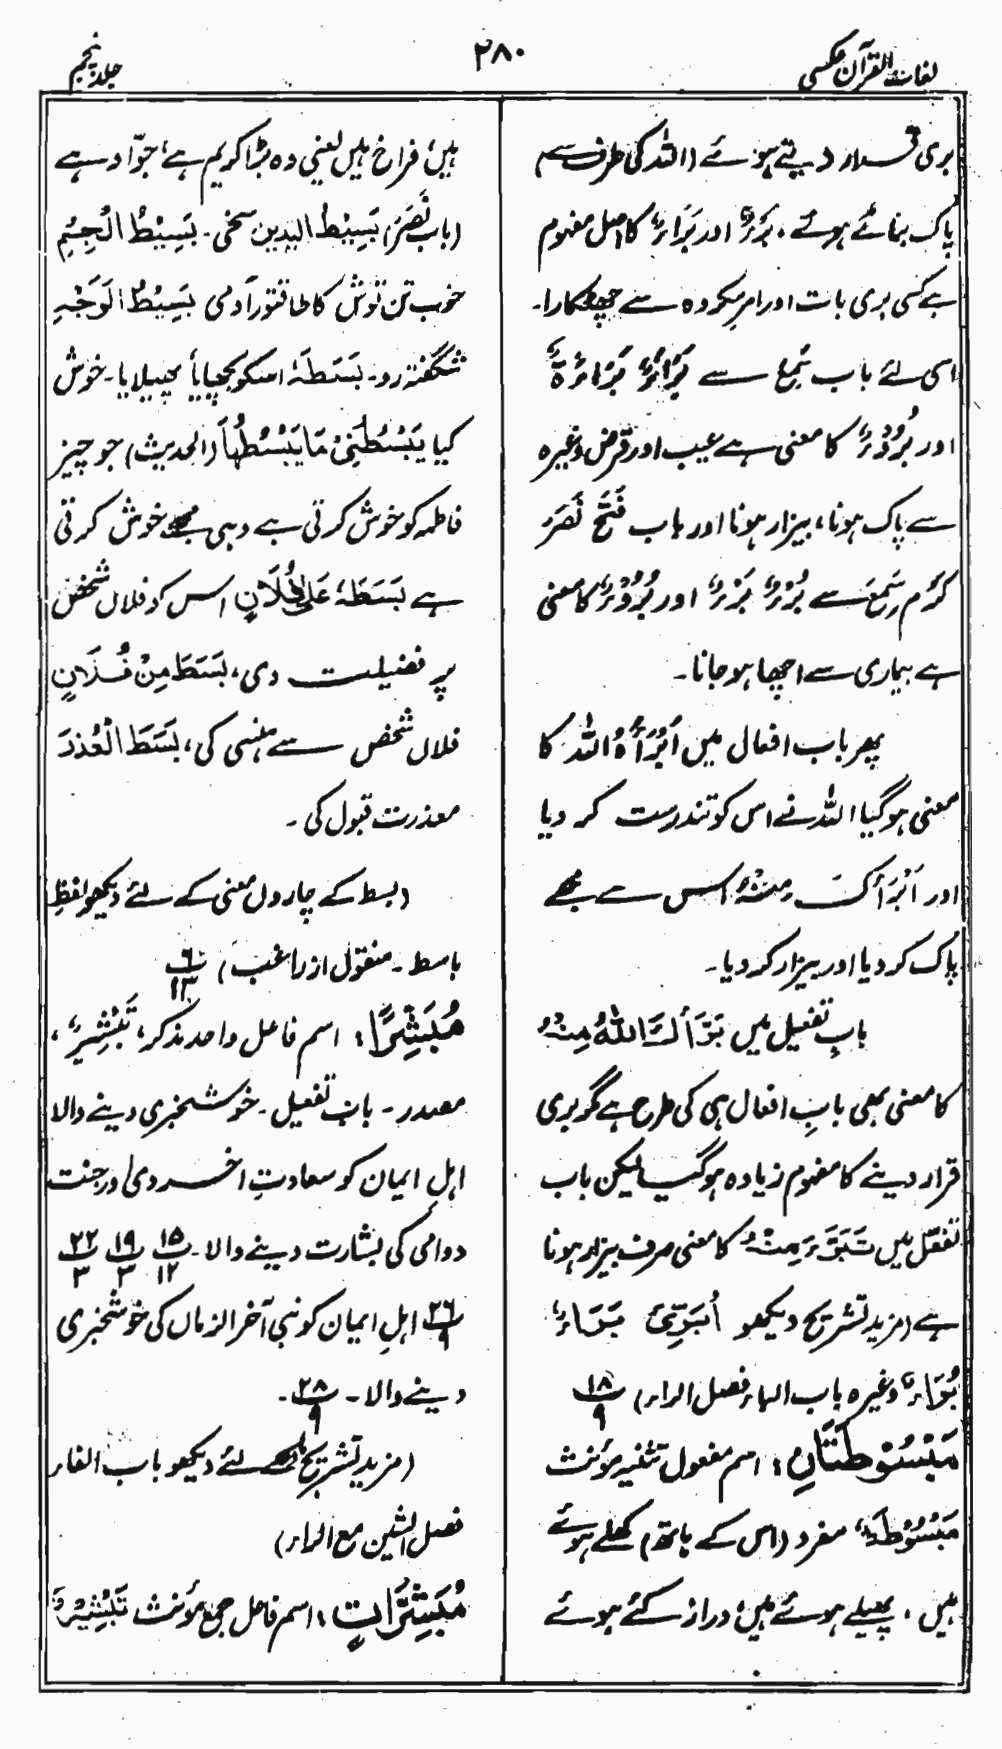 لغات القرآن عکسی
۲۸۰
جلد پنجم
بری قرار دیتے ہوئے (اللہ کی طرف سے)
پاک بنائے ہوئے۔ بَرْءٌ اور بَرَاءٌ کا اصل مفہوم
ہے کسی بری بات اور امر مکروہ سے چھٹکارا۔
اسی لئے باب سَمِعَ سے بَرَاءٌ بَرَاءَةٌ
اور بُرُوْءٌ کا معنی ہے عیب اور قرض وغیرہ
سے پاک ہونا، بیزار ہونا اور باب فَتَحَ نَصَرَ
کَرُمَ سَمِعَ سے بُرْءٌ بَرْءٌ اور بُرُوْءٌ کا معنی
ہے بیماری سے اچھا ہو جانا۔
پھر باب افعال میں اَبْرَأَہُ اللہ کا
معنی ہو گیا اللہ نے اس کو تندرست کر دیا
اور اَبْرَأَکَ مِنْہُ اس سے تجھے
پاک کر دیا اور بیزار کر دیا۔
بابِ تفعیل میں بَرَّأَکَ اللہُ مِنْہُ
کا معنی بھی بابِ افعال ہی کی طرح ہے گو بری
قرار دینے کا مفہوم زیادہ ہو گیا لیکن باب
تفعّل میں تَبَرَّءَ مِنْہُ کا معنی صرف بیزار ہونا
ہے (مزید تشریح دیکھو اُبَرِّئُ بَرَاءٌ
بُرَءٰؤُا وغیرہ باب الباء فصل الراء) ۱۸/۹
مَبْسُوْطَتَانِ: اسم مفعول تثنیہ مؤنث
مَبْسُوْطَۃٌ مفرد (اس کے ہاتھ) کھلے ہوئے
ہیں، پھیلے ہوئے ہیں، دراز کئے ہوئے
ہیں، فراخ ہیں یعنی وہ بڑا کریم ہے، جوّاد ہے
(باب نَصَرَ) بَسِیْطُ الیدین سخی۔ بَسِیْطُ الْجِسْمِ
خوب تن توش کا طاقتور آدمی بَسِیْطُ الْوَجْہِ
شگفتہ رو۔ بَسَطَہٗ اسکو بچھایا پھیلایا۔ خوش
کیا یَبْسُطُنِیْ مَا یَبْسُطُہَا (الحدیث) جو چیز
فاطمہ کو خوش کرتی ہے وہی مجھے خوش کرتی
ہے بَسَطَہٗ عَلیٰ فُلَانٍ اس کو فلاں شخص
پر فضیلت دی، بَسَطَ مِنْ فُلَانٍ
فلاں شخص سے ہنسی کی، بَسَطَ الْعُذْرَ
معذرت قبول کی۔
(بسط کے چاروں معنی کے لئے دیکھو لفظِ
باسط۔ منقول از راغب) ۶/۱۳
مُبَشِّرًا: اسم فاعل واحد مذکر، تَبْشِیْرٌ،
مصدر۔ باب تفعیل۔ خوشخبری دینے والا
اہلِ ایمان کو سعادتِ اخروی اور جنت
دوامی کی بشارت دینے والا۔ ۱۵/۱۲ ۱۹/۳ ۲۲/۳
۲۶/۹ اہلِ ایمان کو نبی آخر الزماں کی خوشخبری
دینے والا۔ ۲۸/۹۔
(مزید تشریح کے لئے دیکھو باب الفار
فصل الشین مع الراء)
مُبَشِّرَاتٍ: اسم فاعل جمع مؤنث تَبْشِیْرٌ